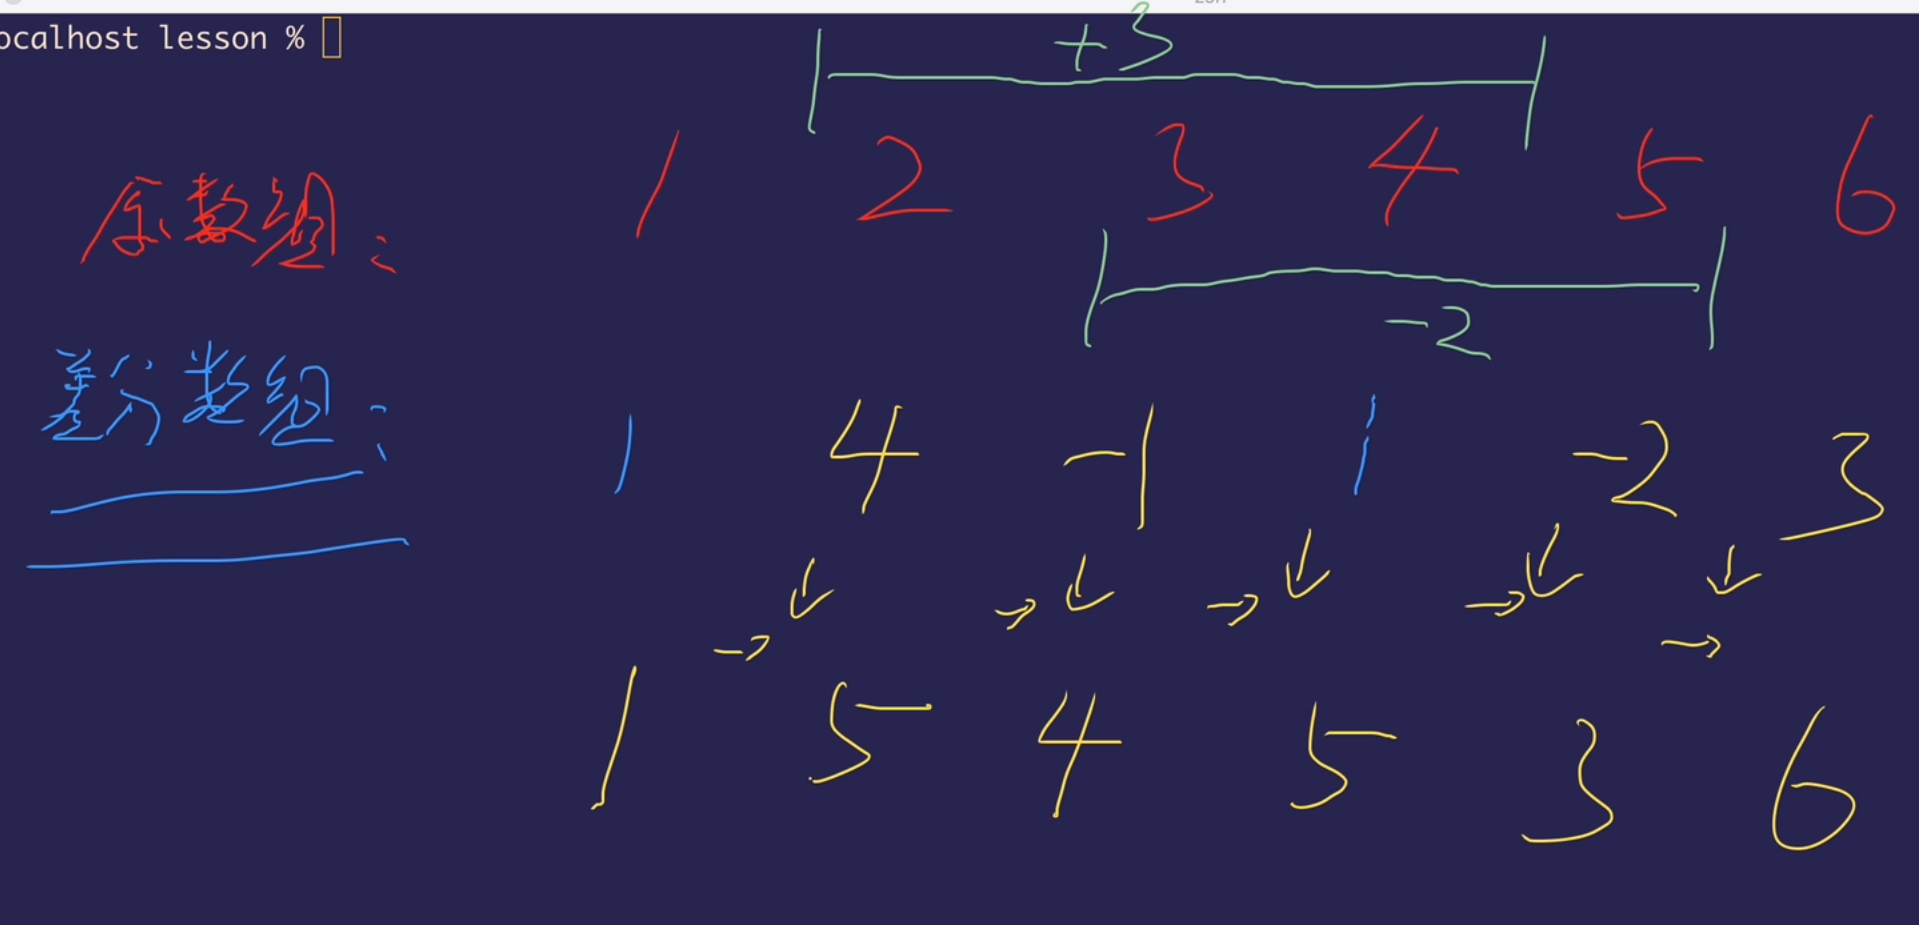 ocalhost lesson %
+3
原数组: 1 2 3 4 5 6
-2
差分数组: 1 4 -1 1 -2 3
1 5 4 5 3 6